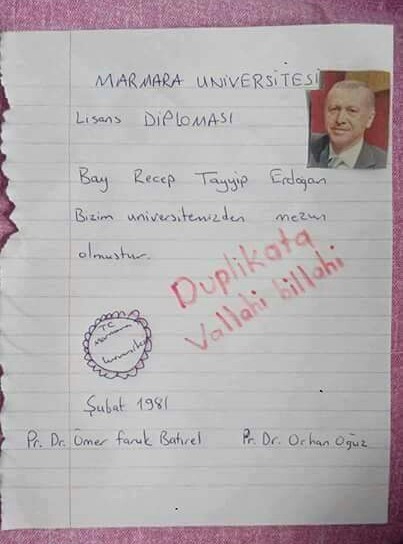 MARMARA ÜNİVERSİTESİ
Lisans DİPLOMASI
Bay Recep Tayyip Erdoğan
Bizim üniversitemizden mezun
olmuştur.
Duplikata
Vallahi billahi
TC
Marmara
Üniversitesi
Şubat 1981
Pr. Dr. Ömer Faruk Batırel Pr. Dr. Orhan Oğuz